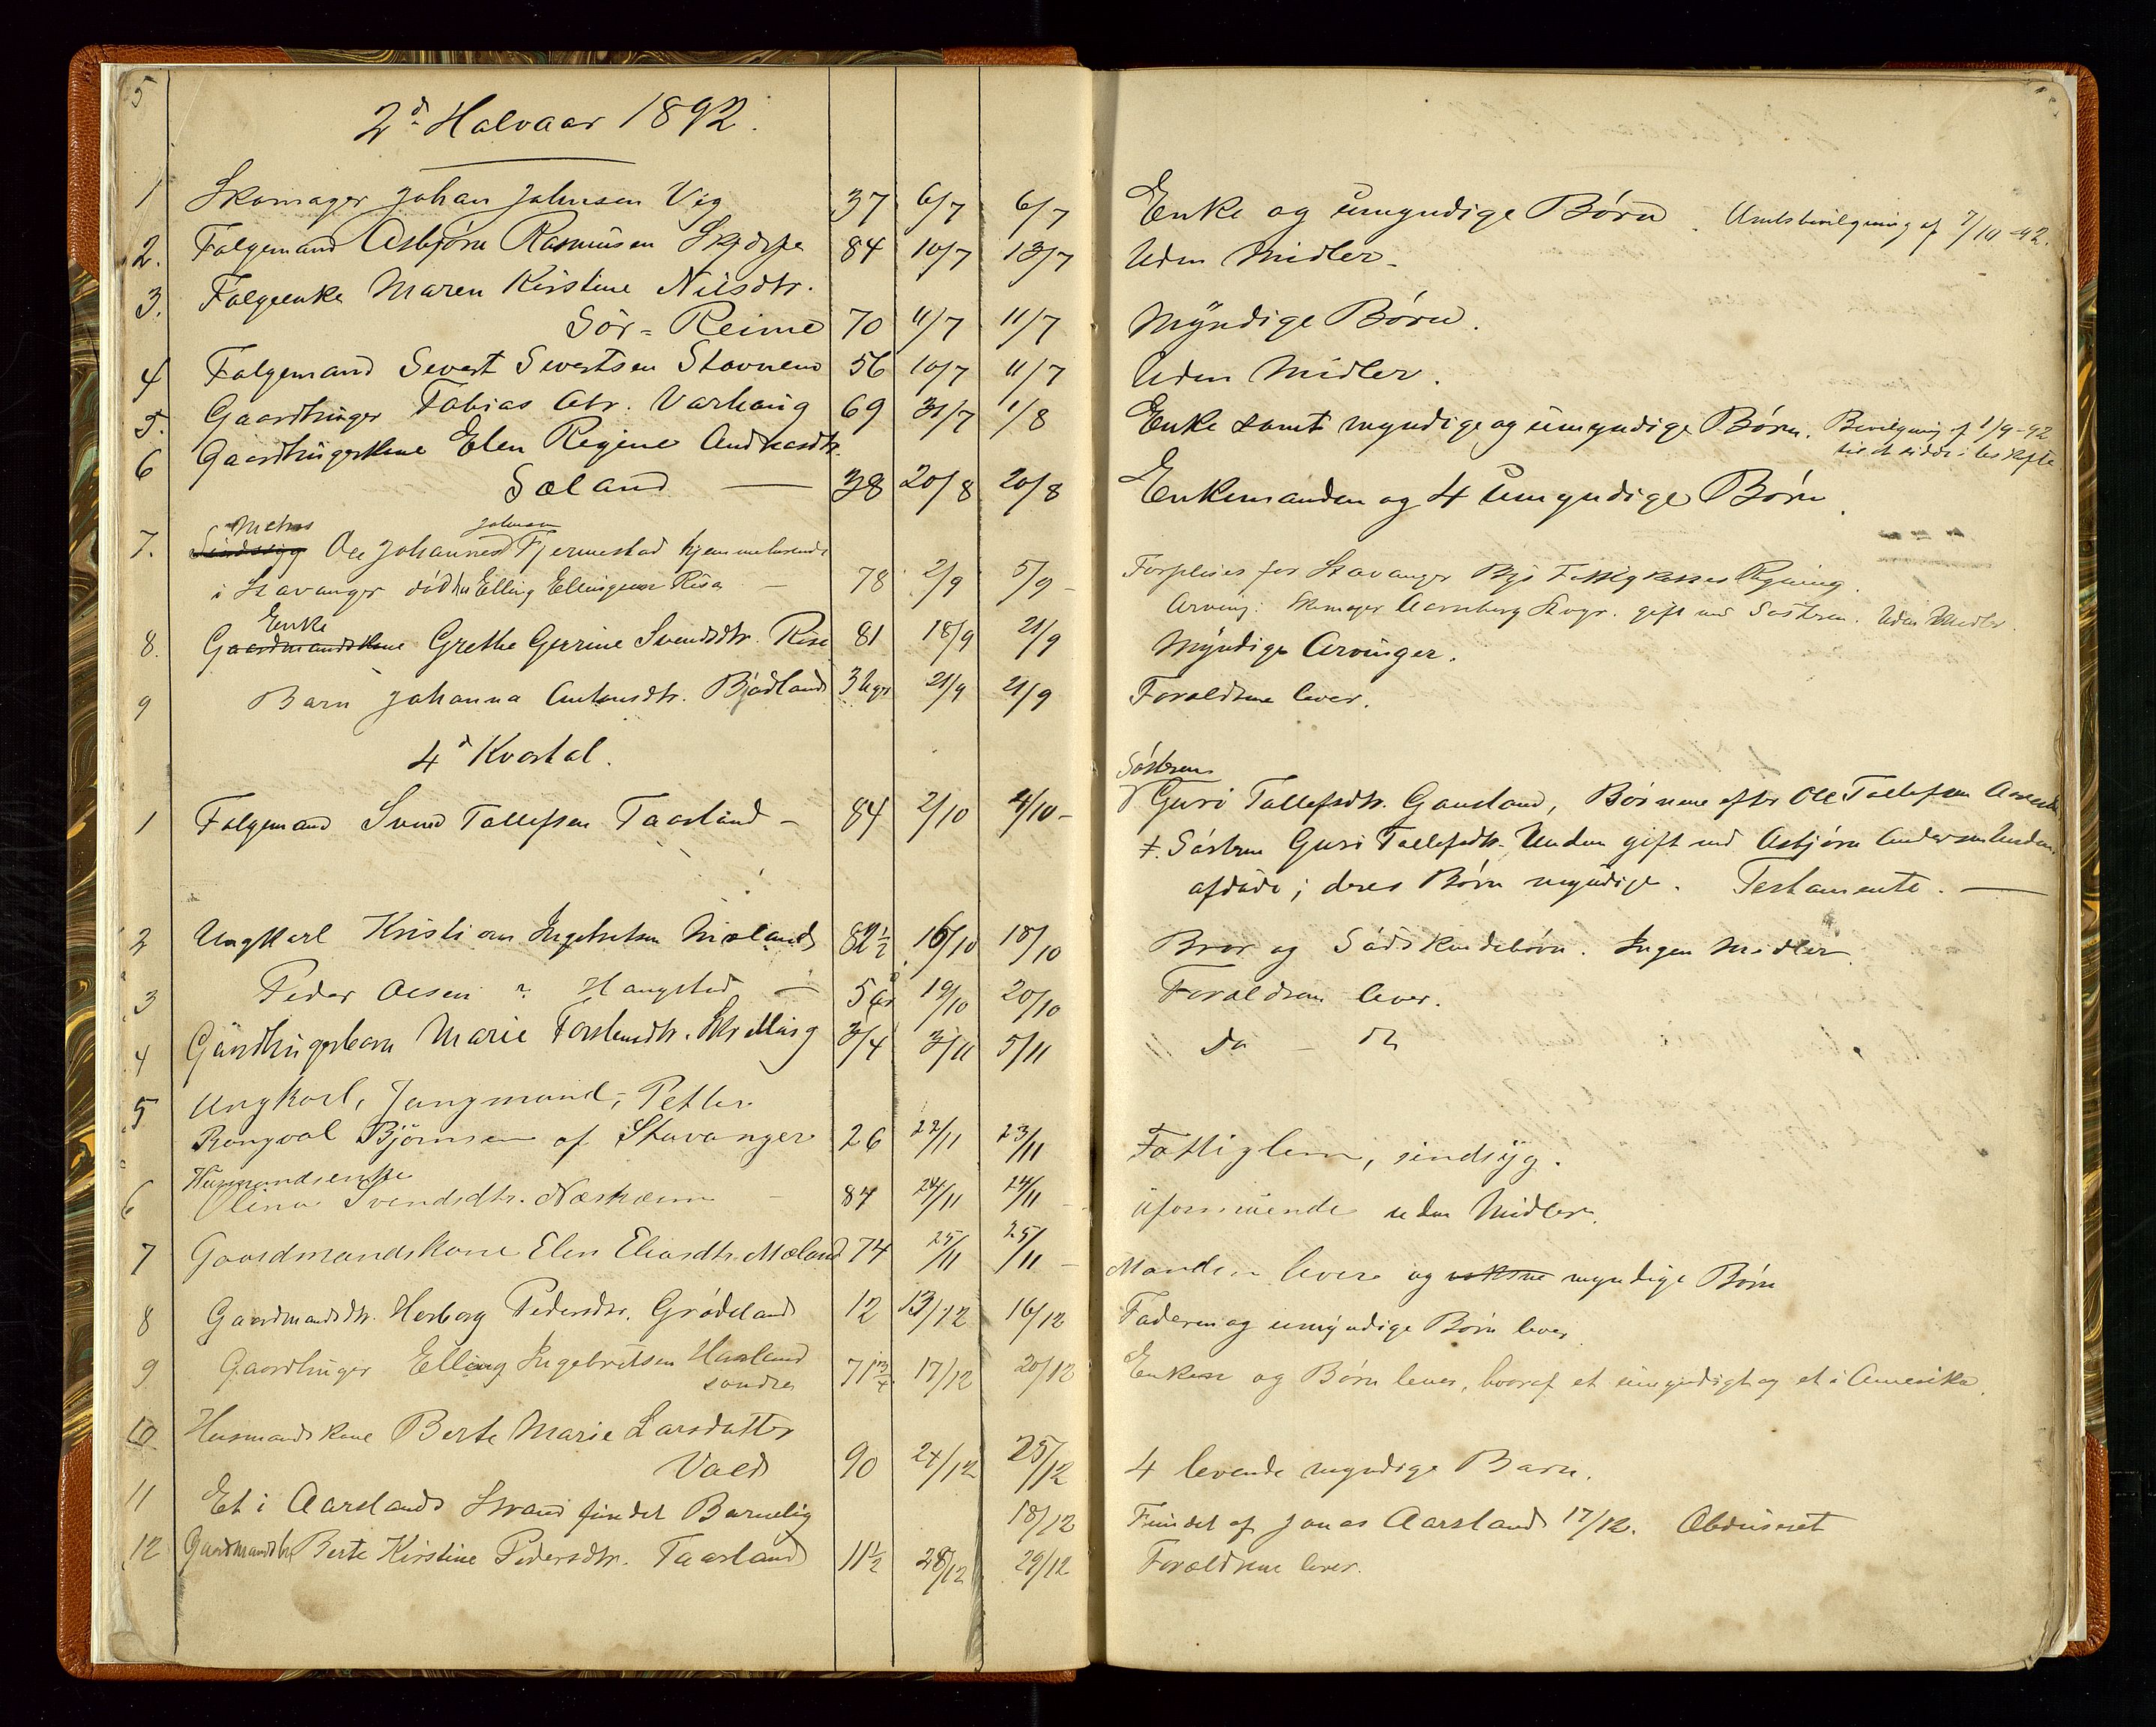 5
2d Halvaar 1892.
1 Skomager Johan Johnsen Vig 37 6/7 6/7 Enke og umyndige Børn. Amtsbevilgning af 7/10 92.
2. Folgemand Asbjørn Rasmussen 84 10/7 13/7 Uden Midler.
3. Folgeenke Maren Kirstine Nilsdtr.
Sör-Reime 70 11/7 11/7 Myndige Børn.
4 Folgemand Severt Sivertsen Stavnem 56 10/7 11/7 Uden Midler.
5. Gaardbruger Tobias Varhaug 69 31/7 1/8 Enke samt myndige og umyndige Børn. Bevilgning af 1/9-92
til at sidde i
6 Gaardbrugerkone Elen Regine Andreasdtr.
Sæland — 38 20/8 20/8 Enkemanden og 4 umyndige Børn.
7. Sindssyg Ole Johannes Fjermestad hjemmehørende
i Stavanger død hos Elling Ellingsen Risa — 78 2/9 5/9 Forpleies for Stavanger Bys Fattigkasses Regning
Arving: Skomager Stvgr. gift med Søsteren. Uden Midler.
Enke
8. Gaardmandskone Grethe Gurine Svendsdtr. Risa 81 18/9 21/9 Myndige Arvinger.
9 Barn Johanna Antonsdtr. Bjødland 3 Uger 21/9 21/9 Forældrene lever.
4d Kvartal.
Søsteren
1 Folgemand Svend Tollefsen Taarland – 84 2/10 4/10 – Guri Tollefsdtr. Gausland, Børnene efter Ole Tollefsen
Søsteren Guri Tollefsdtr. gift med Asbjørn Andersen
afdøde; deres Børn myndige. Testamente. —
2 Ungkarl Kristian Ingebretsen Mæland 82½ 16/10 18/10 Bror og Södskendebörn. Ingen Midler
3 Peder Olsen Haugstad — 19/10 20/10 Forældrene lever.
4 Gaardbrugerbarn Marie Torstensdtr. 3/4 3/11 5/11 do – do
5 Ungkarl, Jungmand, Petter
Rangval Bjørnsen af Stavanger 26 22/11 23/11 Fattiglem, sindsyg.
Husmandsenke
6 Olina Svendsdtr. Næsheim – 84 24/11 24/11 uformuende uden Midler.
7 Gaardmandskone Elen Eliasdtr. Mæland 74 25/11 25/11 Manden lever og voksne myndige Børn
8 Gaardmandsdtr. Herborg Pedersdtr. Grødeland 12 13/12 16/12 Faderen og umyndige Børn lever.
9 Gaardbruger Elling Ingebretsen Haaland
søndre 71¾ 17/12 20/12 Enken og Børn lever, hvoraf et umyndigt og et i Amerika.
10 Husmandskone Berte Marie Larsdatter
Vold 90 24/12 25/12 4 levende myndige Barn.
11 Et i Aarslands Strand fundet Barnelig 18/12 Fundet af Jonas Aarsland 17/12. Obduseret
12 Gaardmandsdtr. Berte Kirstine Pedersdtr. Taarland 11½ 28/12 29/12 Forældrene lever.